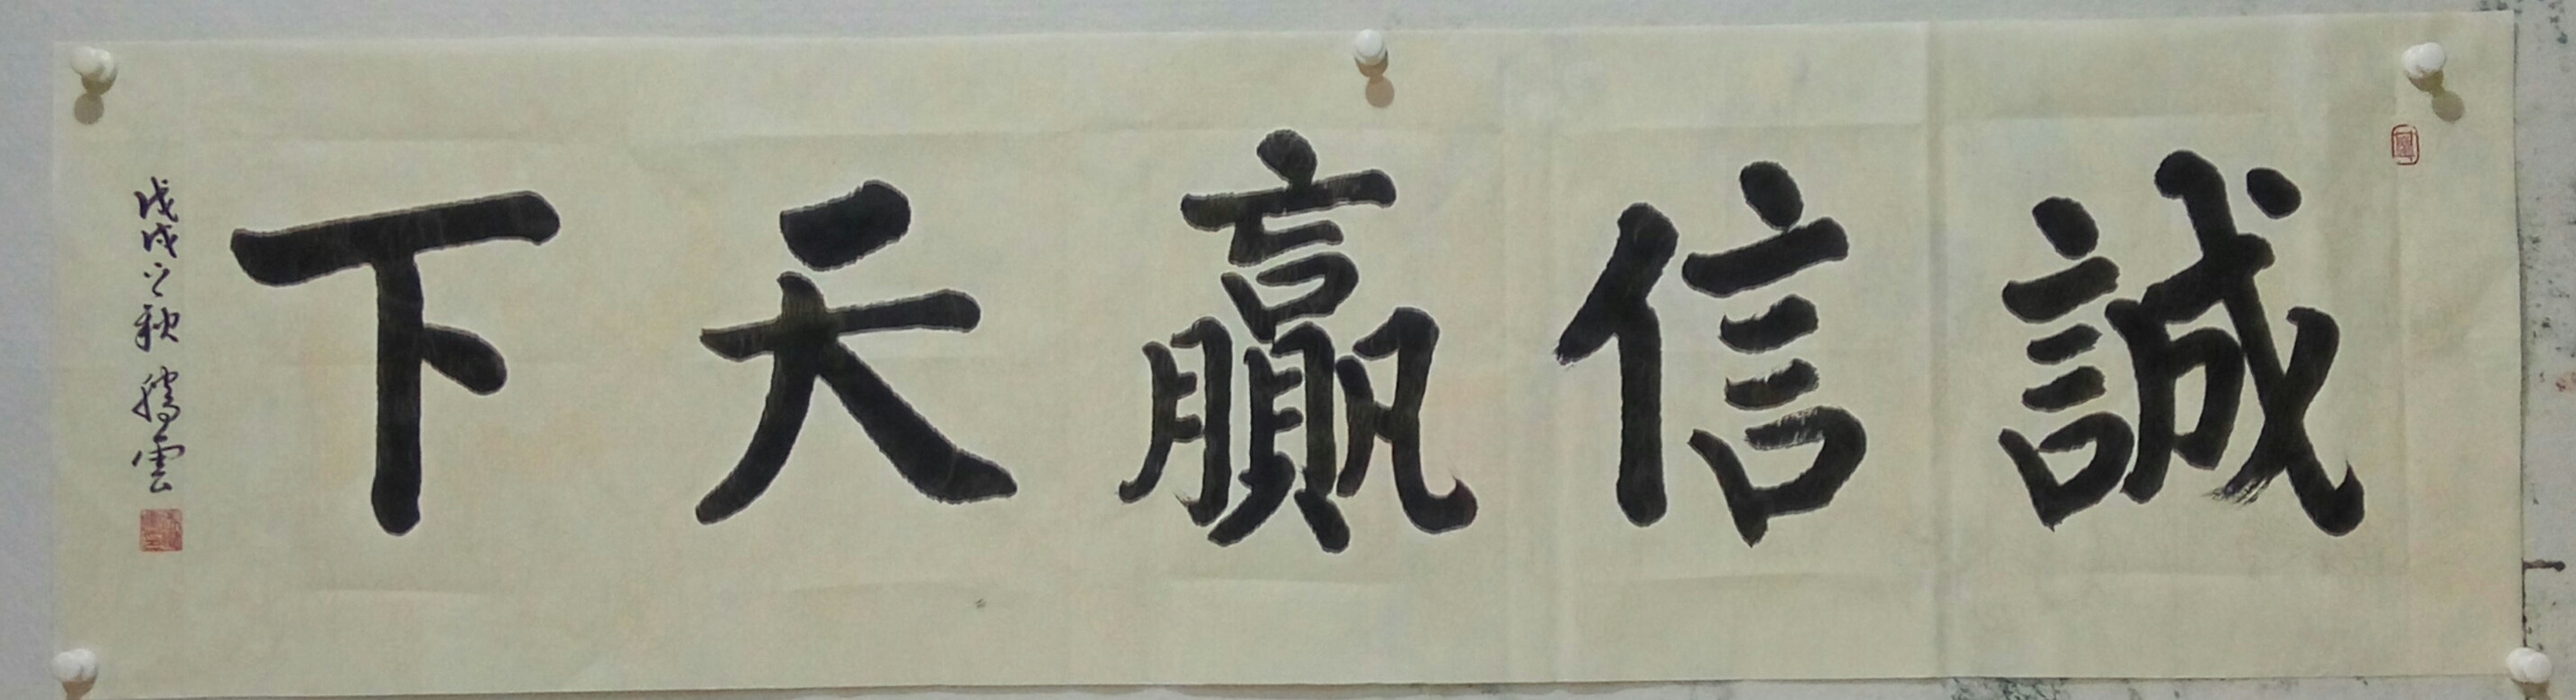 誠信贏天下
戊戌之秋 騰雲